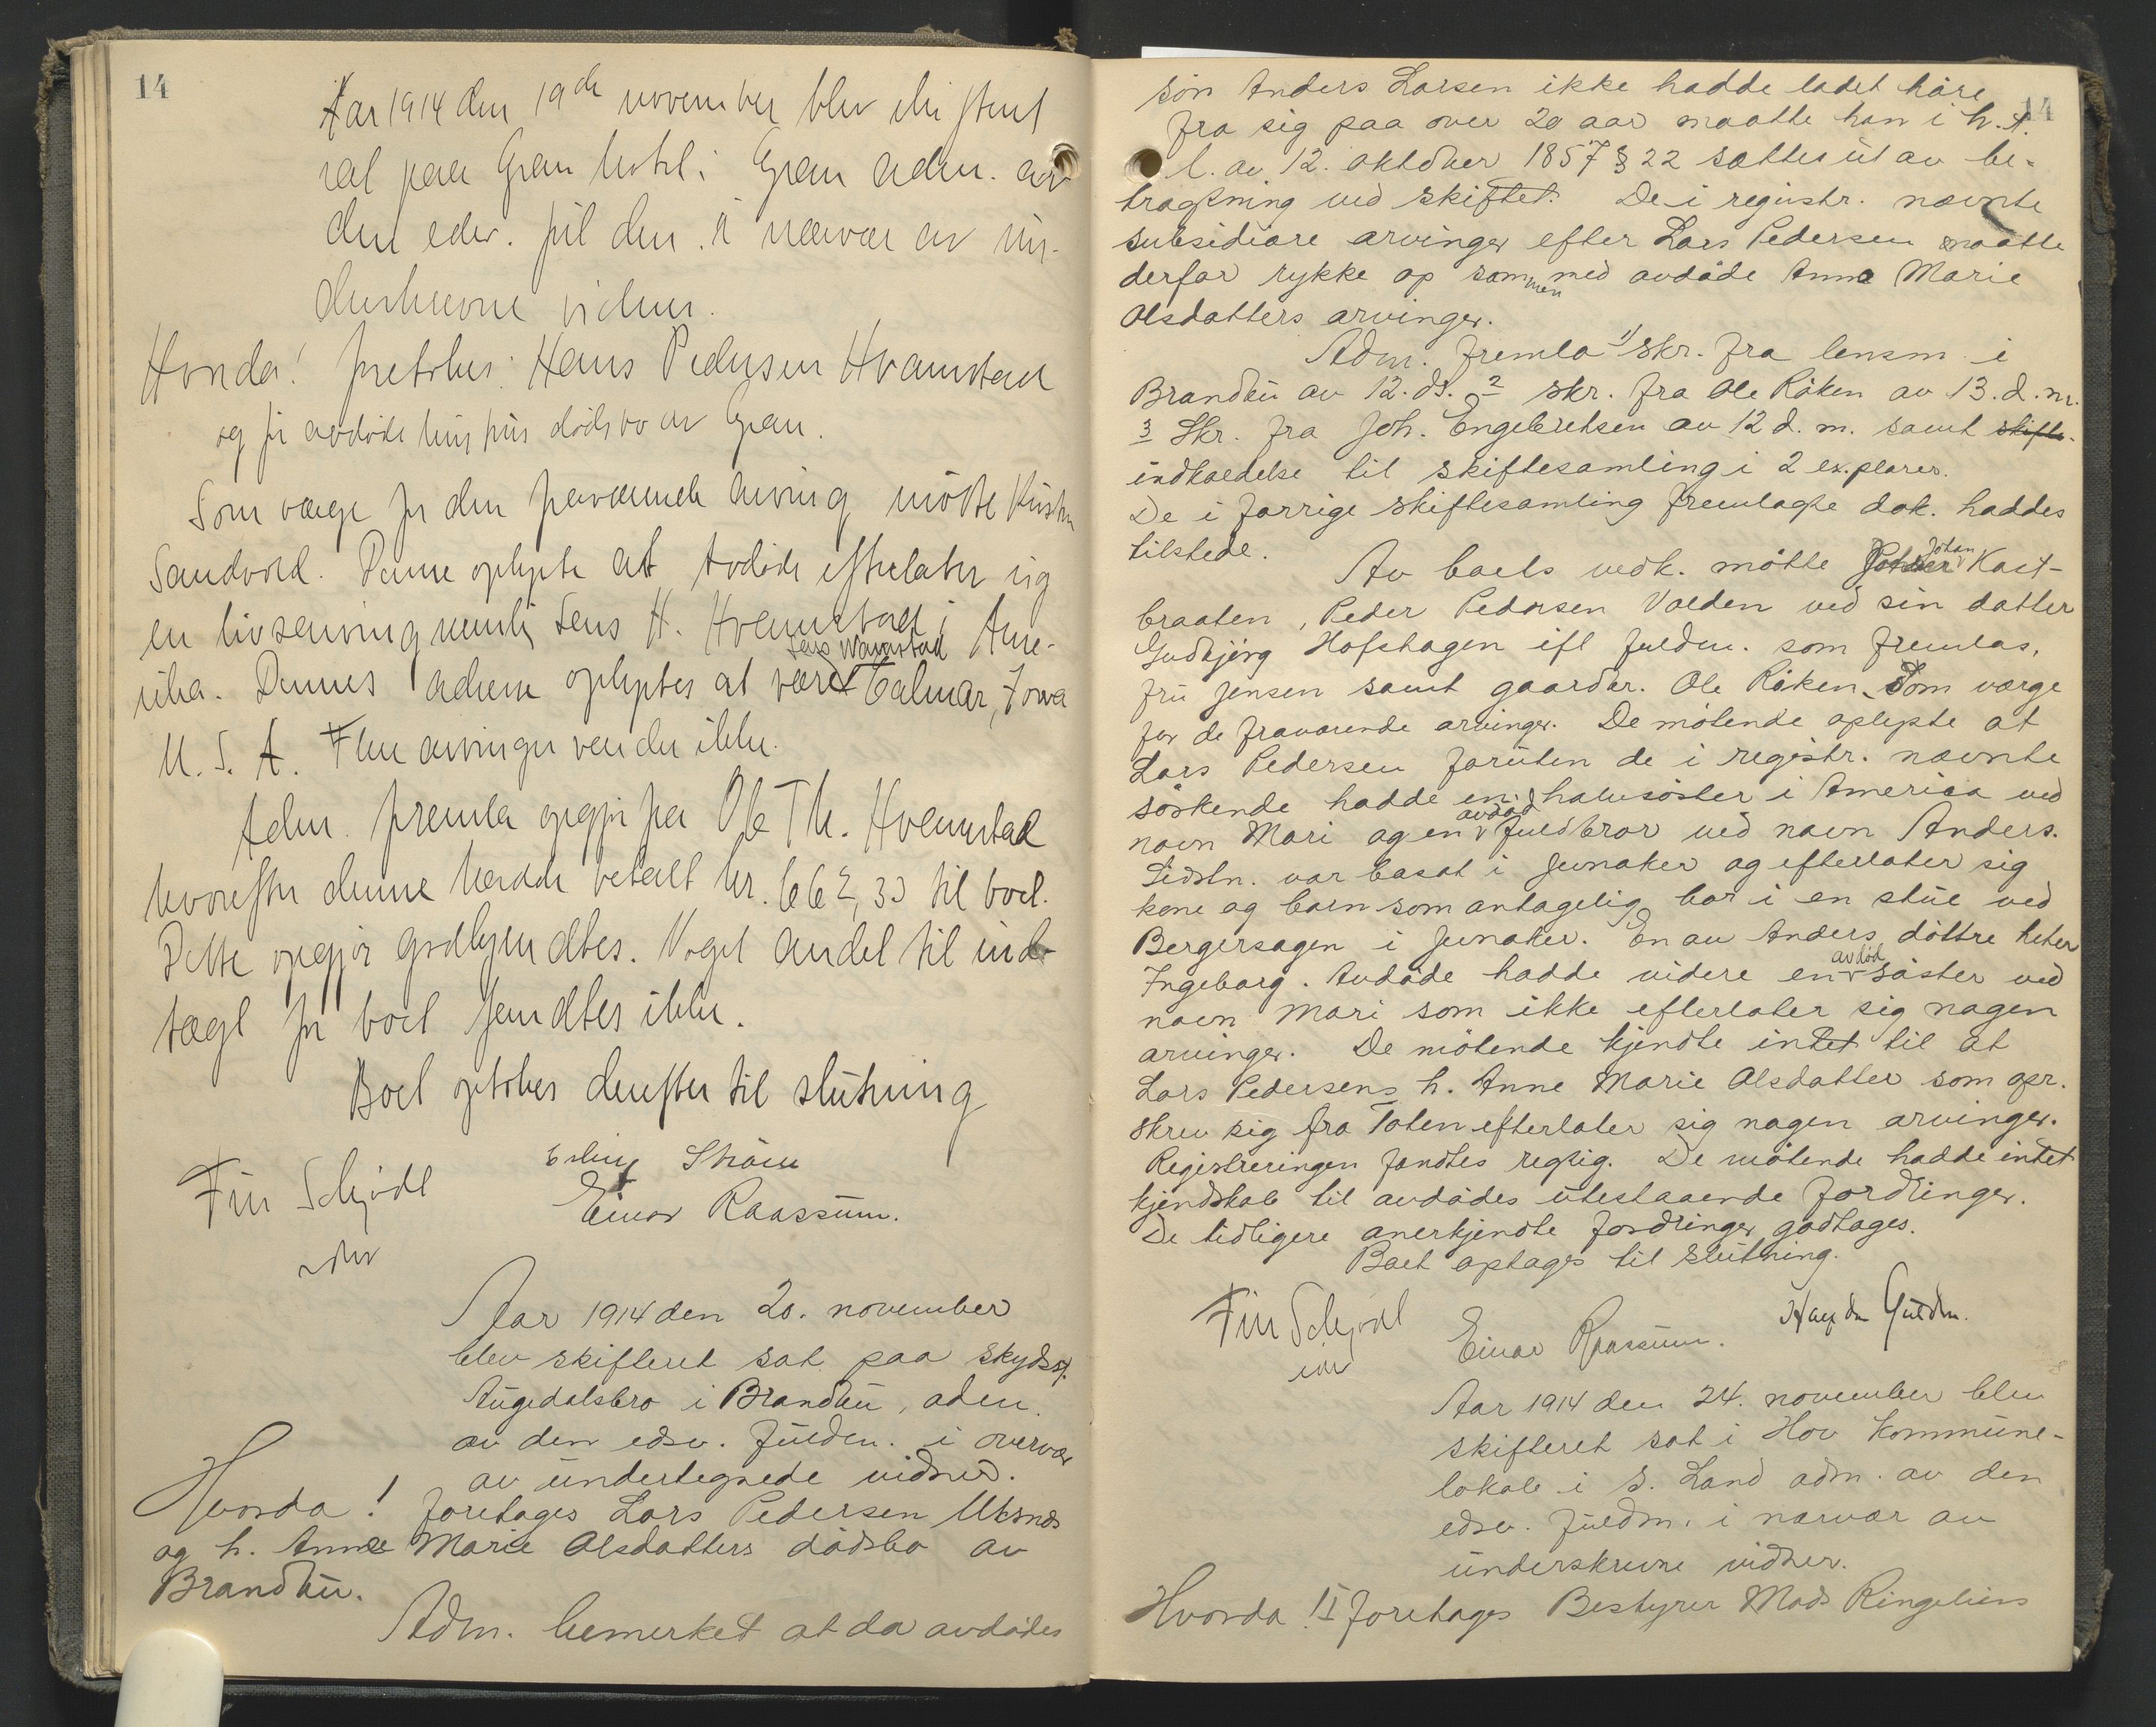 14
Aar 1914 den 19de november blev skifteret
sat paa Gran hotel i Gran adm. av
den edsv. fuldm. i nærvær av un-
derskrevne vidner.
Hvorda! foretokes: Hans Pedersen Hvamstad
og før avdøde hustrus dødsbo av Gran.
Som værge for den fraværende arving møtte Kristen
Sandvold. Denne oplyste at Avdøde efterlater sig
en livsarving nemlig Jens H. Hvamstad i Ame-
Jens Wamstad
rika. Dennes adresse oplystes at være Calmar, Iowa
U.S.A. Flere arvinger var der ikke.
Adm. fremla opgjør fra Ole Th. Hvamstad
hvorefter denne hadde betalt kr. 662,33 til boet.
Dette opgjør godkjendtes. Noget andet til ind-
tægt for boet fandtes ikke.
Boet optokes derefter til slutning
Finn Schjødt
Erling Strøm
Einar Raassum.
edsv
Aar 1914 den 20. november
blev skifteret sat paa skydsst.
Augedalsbro i Brandbu, adm.
av den edsv. fuldm. i overvær
av undertegnede vidner.
Hvorda! foretages Lars Pedersen
og h. Anne Marie Olsdatters dødsbo av
Brandbu.
Adm. bemerket at da avdødes
14
søn Anders Larsen ikke hadde ladet høre
fra sig paa over 20 aar maatte han i h. t.
l. av 12. oktober 1857 § 22 sættes ut av be-
tragtning ved skiftet. De i registr. nævnte
subsidiære arvinger efter Lars Pedersen maatte
derfor rykke op sammen med avdøde Anne Marie
Olsdatters arvinger.
Adm. fremla 1) skr. fra lensm. i
Brandbu av 12. ds. 2 skr. fra Ole Røken av 13. d. m.
3 Skr. fra Joh. Engebretsen av 12 d. m. samt skifte-
indkaldelse til skiftesamling i 2 ex.plarer.
De i forrige skiftesamling fremlagte dok. haddes
tilstede.
Av boets vedk. møtte Johan Kast-
braaten, Peder Pedersen Volden ved sin datter
Gudbjørg Hofshagen ifl fuldm. som fremlas,
fru Jensen samt gaardbr. Ole Røken som værge
for de fraværende arvinger. De møtende oplyste at
Lars Pedersen foruten de i registr. nævnte
søskende hadde en halvsøster i America ved
navn Mari og en avdød fuldbror ved navn Anders.
Sidstn. var bosat i Jevnaker og efterlater sig
kone og barn som antagelig bor i en stue ved
Bergersagen i Jevnaker. En av Anders døttre heter
Ingeborg. Avdøde hadde videre en avdød søster ved
navn Mari som ikke efterlater sig nogen
arvinger. De møtende kjendte intet til at
Lars Pedersens h. Anne Marie Olsdatter som opr.
skrev sig fra Toten efterlater sig nogen arvinger.
Registreringen fandtes regtig. De møtende hadde intet
kjendskab til avdødes utestaaende fordringer.
De tidligere anerkjendte fordringer godtages.
Boet optages til slutning.
Finn Schjødt
edsv
Einar Raassum.
Aar 1914 den 24. november blev
skifteret sat i Hov kommune-
lokale i S. Land adm. av den
edsv. fuldm. i nærvær av
underskrevne vidner.
Hvorda! I foretages Bestyrer Mads Ringeliens